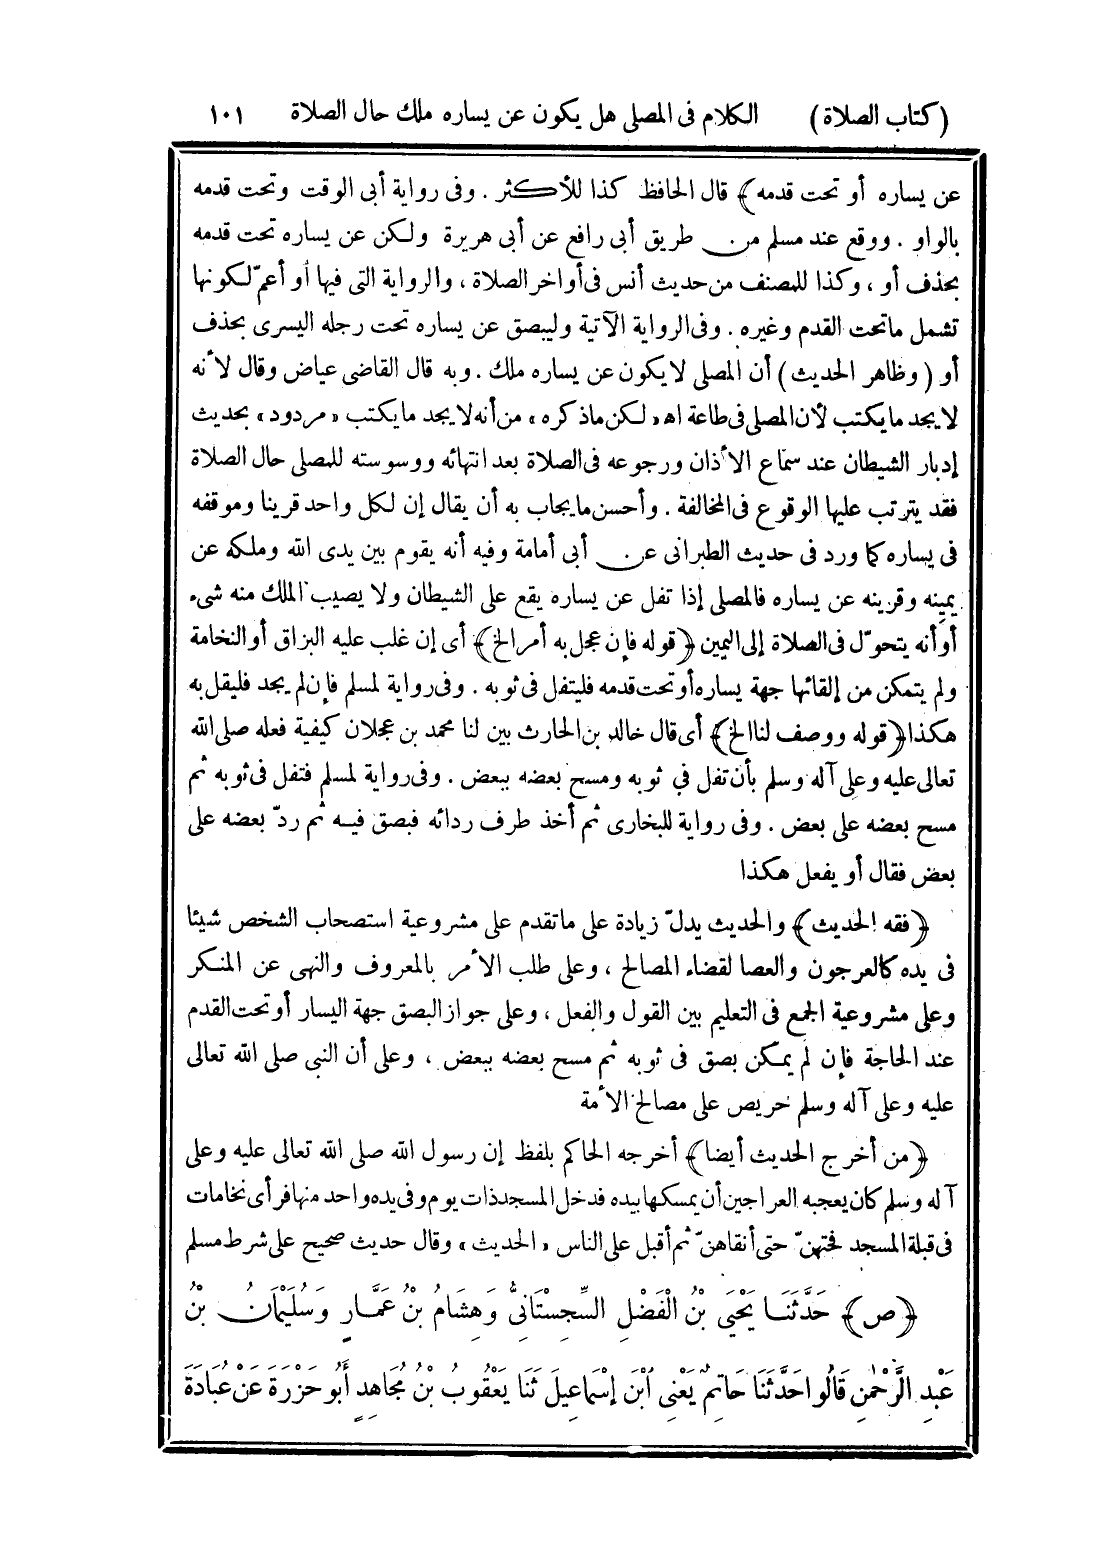 (كتاب الصلاة) الكلام فى المصلى هل يكون عن يساره ملك حال الصلاة ١٠١
عن يساره أو تحت قدمه﴾ قال الحافظ كذا للأكثر . وفى رواية أبى الوقت وتحت قدمه
بالواو . ووقع عند مسلم من طريق أبى رافع عن أبى هريرة ولكن عن يساره تحت قدمه
بحذف أو ، وكذا للمصنف من حديث أنس فى أواخر الصلاة ، والرواية التى فيها أو أعمّ لكونها
تشمل ما تحت القدم وغيره . وفى الرواية الآتية وليبصق عن يساره تحت رجله اليسرى بحذف
أو (وظاهر الحديث) أن المصلى لا يكون عن يساره ملك . وبه قال القاضى عياض وقال لأنه
لا يجد ما يكتب لأن المصلى فى طاعة اه «لكن ما ذكره» من أنه لا يجد ما يكتب «مردود» بحديث
إدبار الشيطان عند سماع الأذان ورجوعه فى الصلاة بعد انتهائه ووسوسته للمصلى حال الصلاة
فقد يترتب عليها الوقوع فى المخالفة . وأحسن ما يجاب به أن يقال إن لكل واحد قرينا وموقفه
فى يساره كما ورد فى حديث الطبرانى عن أبى أمامة وفيه أنه يقوم بين يدى الله وملكه عن
يمينه وقرينه عن يساره فالمصلى إذا تفل عن يساره يقع على الشيطان ولا يصيب الملك منه شىء
أو أنه يتحوّل فى الصلاة إلى اليمين ﴿قوله فإن عجل به أمر الخ﴾ أى إن غلب عليه البزاق أو النخامة
ولم يتمكن من إلقائها جهة يساره أو تحت قدمه فليتفل فى ثوبه . وفى رواية لمسلم فإن لم يجد فليقل به
هكذا ﴿قوله ووصف لنا الخ﴾ أى قال خالد بن الحارث بين لنا محمد بن عجلان كيفية فعله صلى الله
تعالى عليه وعلى آله وسلم بأن تفل في ثوبه ومسح بعضه ببعض . وفى رواية لمسلم فتفل فى ثوبه ثم
مسح بعضه على بعض . وفى رواية للبخارى ثم أخذ طرف ردائه فبصق فيه ثم ردّ بعضه على
بعض فقال أو يفعل هكذا
﴿فقه الحديث﴾ والحديث يدلّ زيادة على ما تقدم على مشروعية استصحاب الشخص شيئا
فى يده كالعرجون والعصا لقضاء المصالح ، وعلى طلب الأمر بالمعروف والنهى عن المنكر
وعلى مشروعية الجمع فى التعليم بين القول والفعل ، وعلى جواز البصق جهة اليسار أو تحت القدم
عند الحاجة فإن لم يمكن بصق فى ثوبه ثم مسح بعضه ببعض ، وعلى أن النبي صلى الله تعالى
عليه وعلى آله وسلم حريص على مصالح الأمة
﴿من أخرج الحديث أيضا﴾ أخرجه الحاكم بلفظ إن رسول الله صلى الله تعالى عليه وعلى
آله وسلم كان يعجبه العراجين أن يمسكها بيده فدخل المسجد ذات يوم وفى يده واحد منها فرأى نخامات
فى قبلة المسجد فحتهنّ حتى أنقاهنّ ثم أقبل على الناس «الحديث» وقال حديث صحيح على شرط مسلم
﴿ص﴾ حَدَّثَنَا يَحْيَى بْنُ الْفَضْلِ السِّجِسْتَانِىُّ وَهِشَامُ بْنُ عَمَّارٍ وَسُلَيْمَانُ بْنُ
عَبْدِ الرَّحْمٰنِ قَالُوا حَدَّثَنَا حَاتِمٌ يَعْنِى ابْنَ إِسْمَاعِيلَ ثَنَا يَعْقُوبُ بْنُ مُجَاهِدٍ أَبُو حَزْرَةَ عَنْ عُبَادَةَ